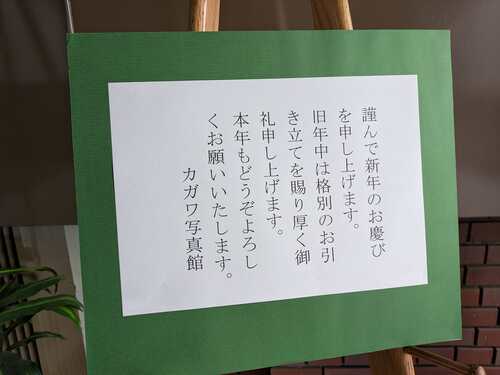 謹んで新年のお慶び
を申し上げます。
旧年中は格別のお引
き立てを賜り厚く御
礼申し上げます。
本年もどうぞよろし
くお願いいたします。
カガワ写真館